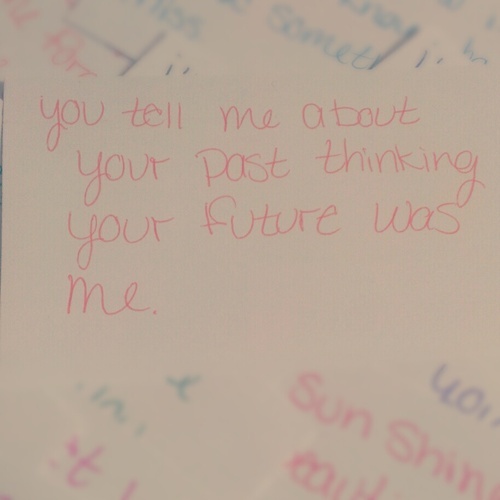 you tell me about
your past thinking
your future was
me.
Sun Shin